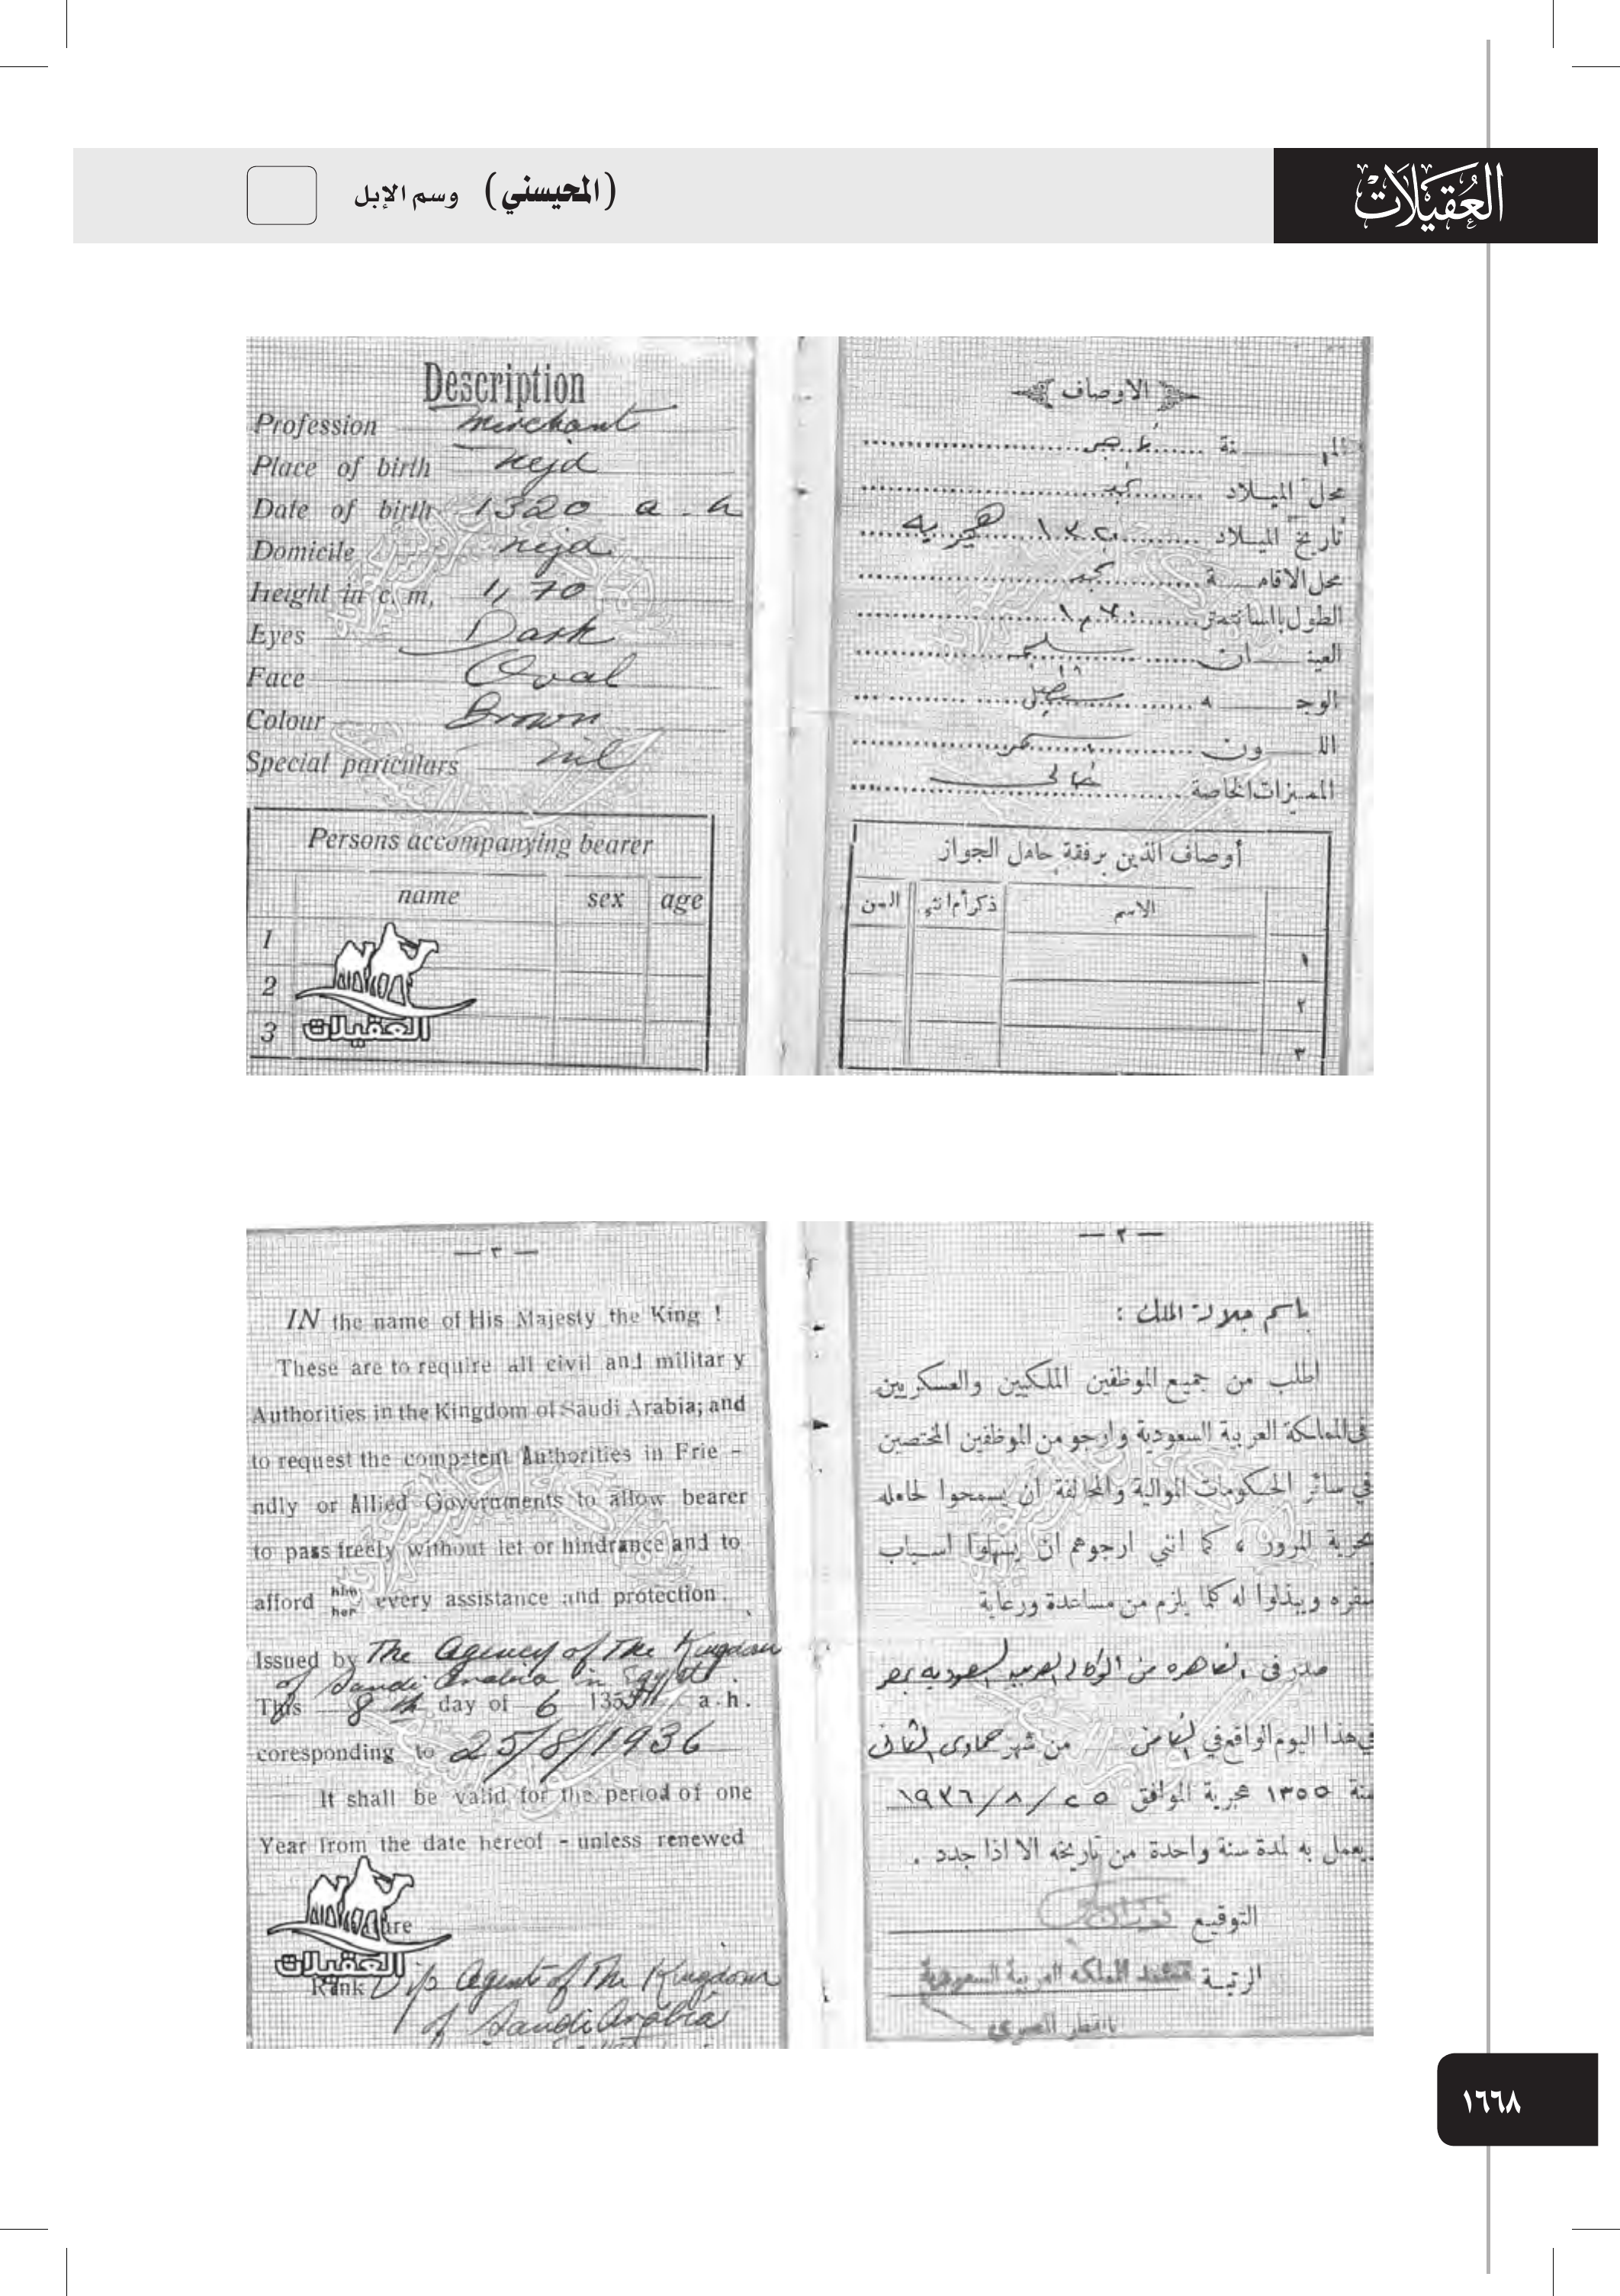 العُقيلات
(المحيسني) وسم الإبل
Description
Profession Merchant
Place of birth Nejd
Date of birth 1320 a.h
Domicile Nejd
Height in c. m, 1,70
Eyes Dark
Face Oval
Colour Brown
Special pariculars nil
Persons accompanying bearer
name sex age
1
2
3
العقيلات
الاوصاف
المهنة
محل الميلاد نجد
تاريخ الميلاد ١٣٢٠ هجريه
محل الاقامة نجد
الطول بالسانتمتر ١٧٠
العينان
الوجه مستطيل
اللون
المميزات الخاصة خالى
أوصاف الذين برفقة حامل الجواز
الاسم ذكر أم انثى السن
١
٢
٣
— ٣ —
IN the name of His Majesty the King !
These are to require all civil and military
Authorities in the Kingdom of Saudi Arabia; and
to request the competent Authorities in Frie -
ndly or Allied Governments to allow bearer
to pass freely without let or hindrance and to
afford him her every assistance and protection.
Issued by The Agency of The Kingdom
of Saudi Arabia in Egypt.
This 8th day of 6 1355 a.h.
coresponding to 25/8/1936
It shall be valid for the period of one
Year from the date hereof - unless renewed
العقيلات
Rank Agent of The Kingdom
of Saudi Arabia
— ٢ —
باسم جلالة الملك :
اطلب من جميع الموظفين الملكيين والعسكريين
في المملكة العربية السعودية وارجو من الموظفين المختصين
في سائر الحكومات الموالية والمحالفة ان يسمحوا لحامله
بحرية المرور ، كما انني ارجوهم ان يسهلوا اسباب
سفره ويبذلوا له كلما يلزم من مساعدة ورعاية
صدر فى القاهره من الوكالة العربيه السعوديه بمصر
في هذا اليوم الواقع في الثامن من شهر جمادى الثانى
سنة ١٣٥٥ هجرية الموافق ٢٥ / ٨ / ١٩٣٦
يعمل به لمدة سنة واحدة من تاريخه الا اذا جدد .
التوقيع
الرتبة المملكة العربية السعودية
بالقطر المصري
١٦٦٨